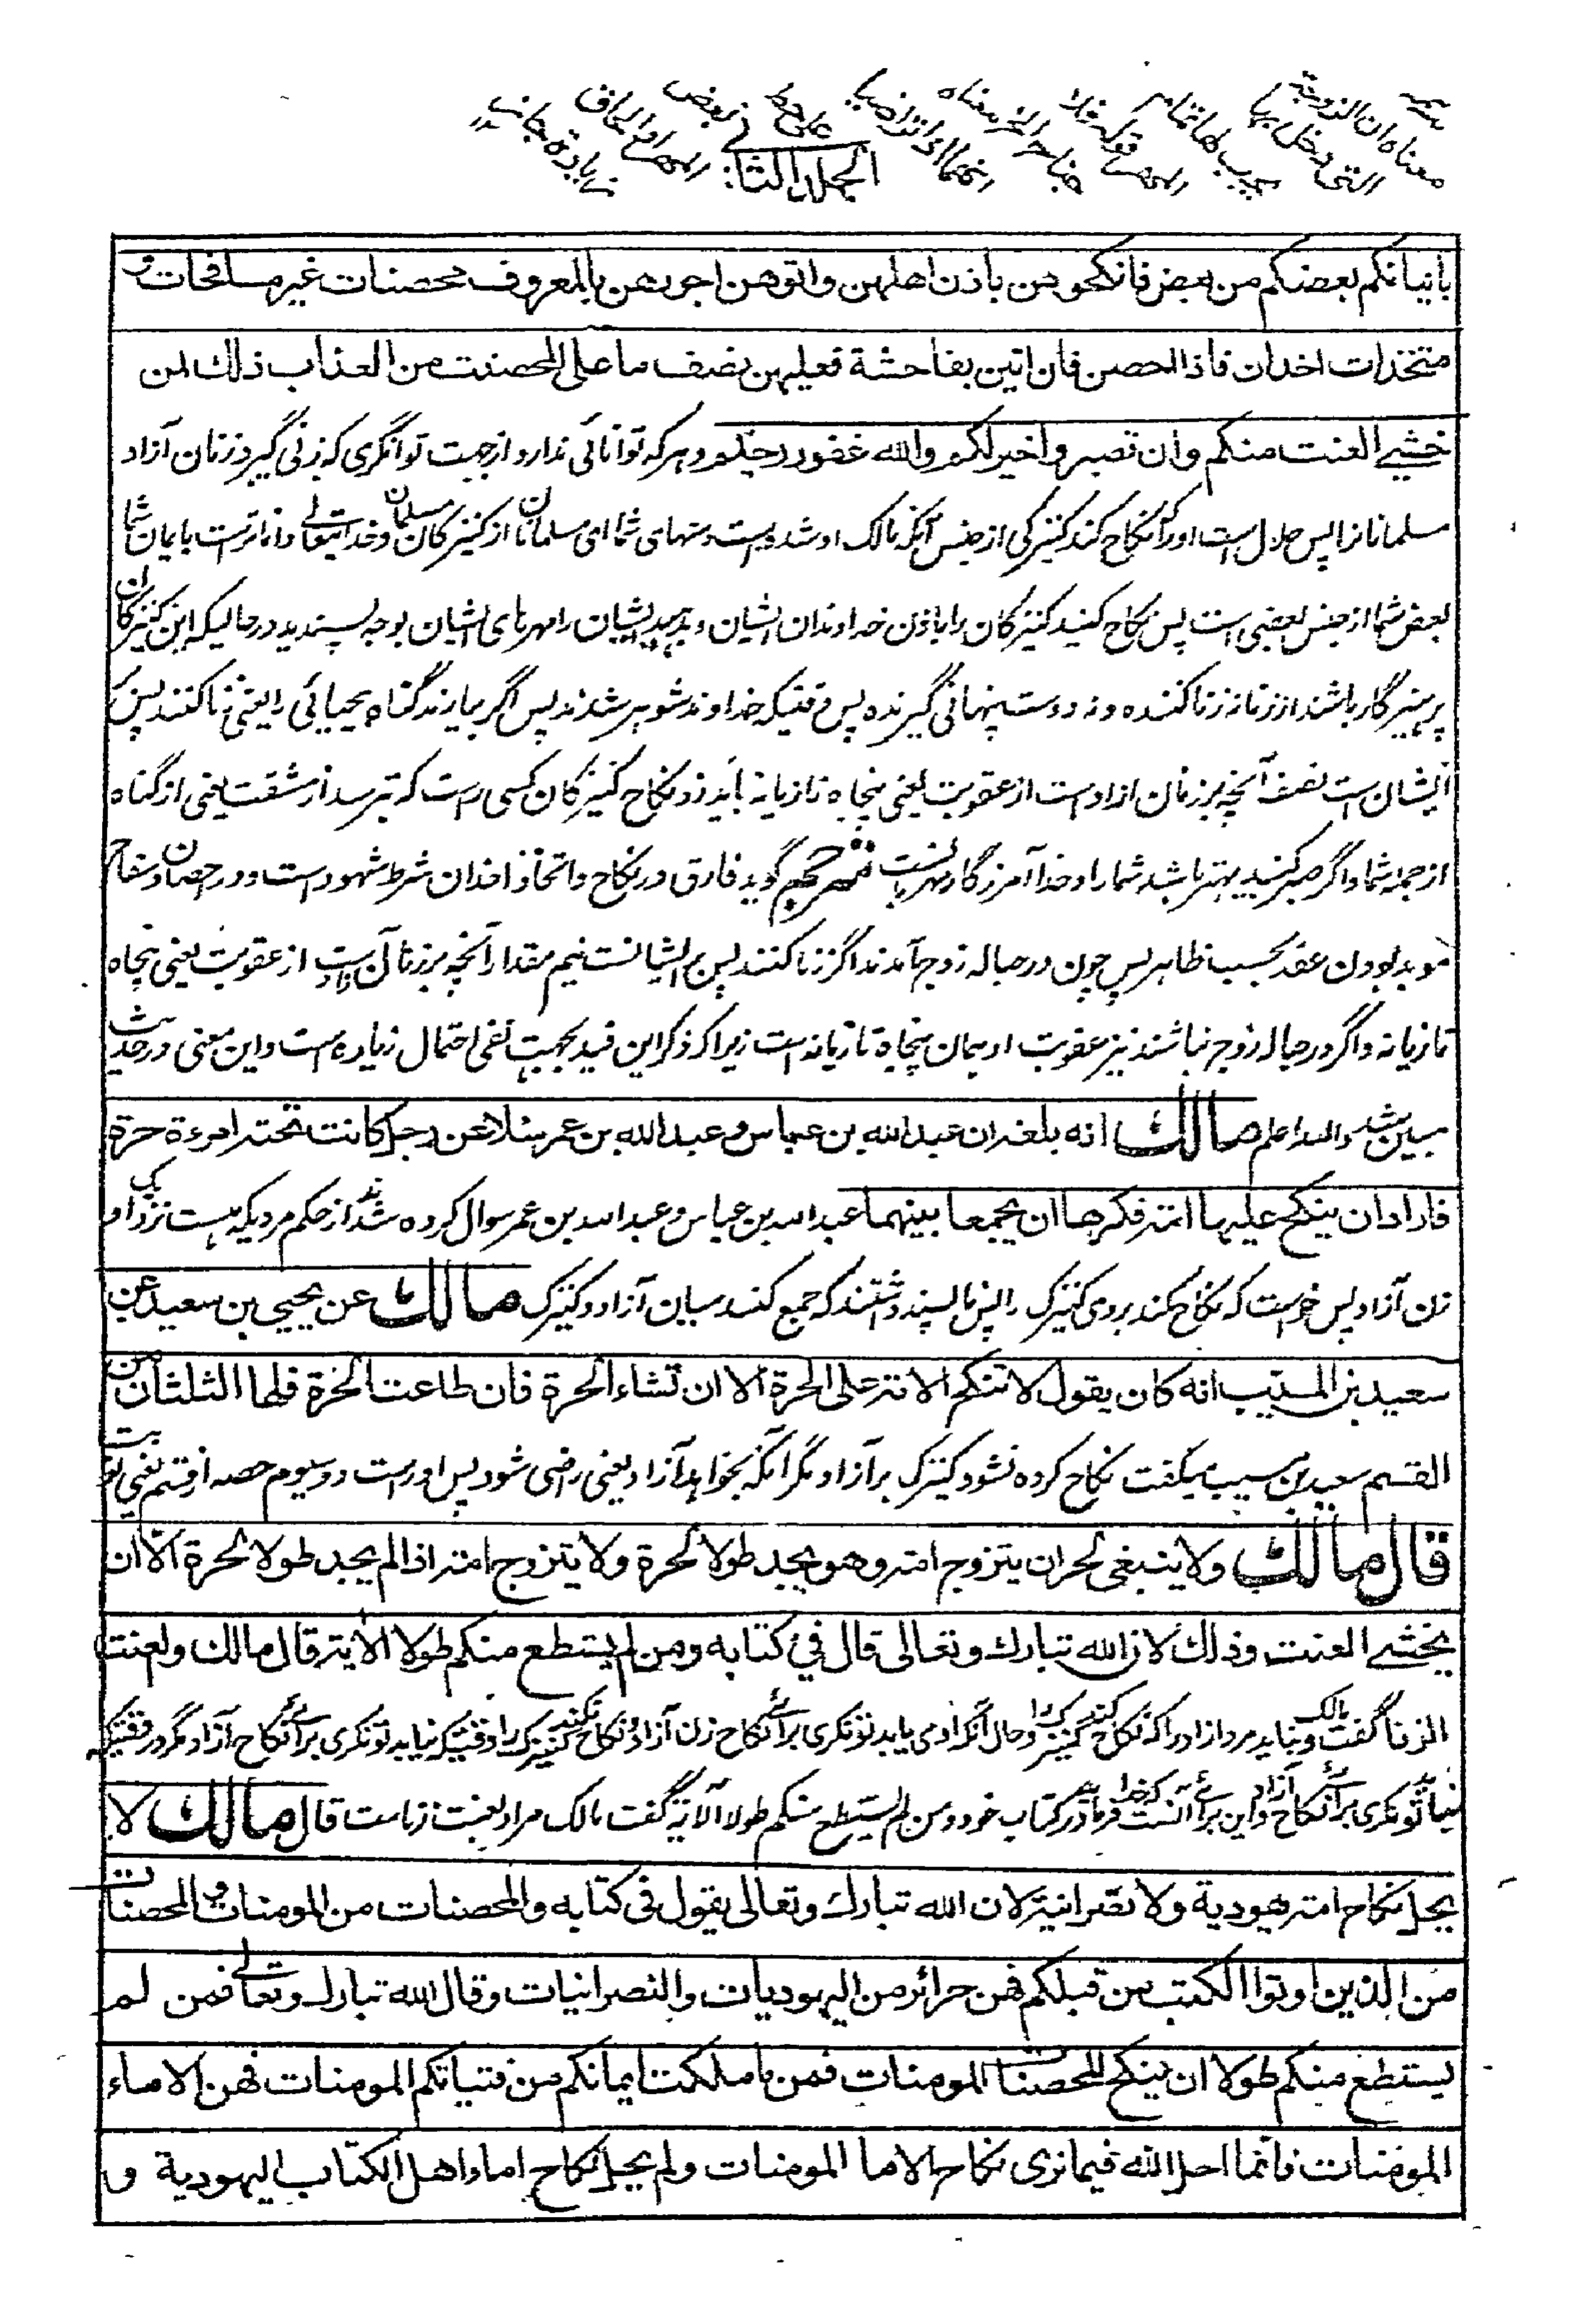 الجلد الثاني
بايمانكم بعضكم من بعض فانكحوهن باذن اهلهن واتوهن اجورهن بالمعروف محصنات غير مسافحات و
متخذات اخدان فاذا احصن فان اتين بفاحشة فعليهن نصف ما على المحصنت من العذاب ذلك لمن
خشي العنت منكم وان تصبروا خير لكم والله غفور رحيم وهر که توانائی ندارد از جهت توانگری که بزنی گیرد زنان آزاد
مسلمانان را پس حلال است او را که نکاح کند کنیزکی از جنس آنکه مالک او شده است دستهای شما ای مسلمانان از کنیزکان مسلمان وخدایتعالی داناتر است بایمان شما
بعض شما از جنس بعضی است پس نکاح کنید کنیزکان را باذن خداوندان ایشان وبدهید ایشان را مهرهای ایشان بوجه پسندیده در حالیکه این کنیزکان
پرهیزگار باشند از زنا نه زنا کننده ونه دوست پنهانی گیرنده پس وقتیکه خداوند شوهر شدند پس اگر بیارند گناه بیحیائی را یعنی زنا کنند پس بر
ایشان است نصف آنچه بر زنان ازاد است از عقوبت یعنی پنجاه تازیانه باید زد نکاح کنیزکان کسی راست که بترسد از مشقت یعنی از گناه
از جمله شما واگر صبر کنید بهتر باشد شما را وخدا آمرزگار مهربانست مترجم گوید فارق در نکاح واتخاذ اخدان شرط شهود است ودر احصان وسفاح
موبد بودن عقد بحسب ظاهر پس چون در حباله زوج آمدند اگر زنا کنند پس بر ایشانست نیم مقدار آنچه بر زنان آزاد است از عقوبت یعنی پنجاه
تازیانه واگر در حباله زوج نباشند نیز عقوبت او همان پنجاه تازیانه است زیرا که ذکر این قید بجهت نفی احتمال زیاده است واین معنی در حدیث
مبین شد والله اعلم مالك انه بلغه ان عبد الله بن عباس وعبد الله بن عمر سئلا عن رجل كانت تحته امرءة حرة
فاراد ان ينكح عليها امته فكرها ان يجمعا بينهما عبد الله بن عباس وعبد الله بن عمر سوال کرده شدند از حکم مردیکه هست نزد او یک
زن آزاد پس خواست که نکاح کند بر وی کنیزک را پس ناپسند داشتند که جمع کند میان آزاد وکنیزک مالك عن يحيى بن سعيد عن
سعيد بن المسيب انه كان يقول لا تنكح الامة على الحرة الا ان تشاء الحرة فان طاعت الحرة فلها الثلثان من
القسم سعید بن مسیب میگفت نکاح کرده نشود کنیزک بر آزاد مگر آنکه بخواهد آزاد یعنی راضی شود پس او راست دو سیوم حصه از قسم یعنی نوبت
قال مالك ولا ينبغي لحران يتزوج امته وهو يجد طولا لحرة ولا يتزوج امته اذا لم يجد طولا لحرة الا ان
يخشى العنت وذلك لان الله تبارك وتعالى قال في كتابه ومن لم يستطع منكم طولا الاية قال مالك والعنت
الزنا گفت مالک ونباید مرد ازاد را که نکاح کند کنیزک را وحال آنکه او می یابد تونگری برائے نکاح زن آزاد ونکاح نکند کنیزک را وقتیکه نیابد تونگری برائے نکاح آزاد مگر در وقتیکه
نیابد تونگری برائے نکاح آزاد واین برائے آنست که خدا فرمود در کتاب خود ومن لم یستطع منکم طولا الآیة گفت مالک مراد بعنت زنا ست قال مالك لا
يحل نكاح امته يهودية ولا نصرانية لان الله تبارك وتعالى يقول فى كتابه والمحصنات من المومنات والمحصنات
من الذين اوتوا الكتب من قبلكم فهن حرائر من اليهوديات والنصرانيات وقال الله تبارك وتعالى فمن لم
يستطع منكم طولا ان ينكح المحصنات المومنات فمن ما ملكت ايمانكم من فتياتكم المومنات فهن الاماء
المومنات فانما احل الله فيما نرى نكاح الاماء المومنات ولم يحل نكاح اماء اهل الكتاب اليهودية و